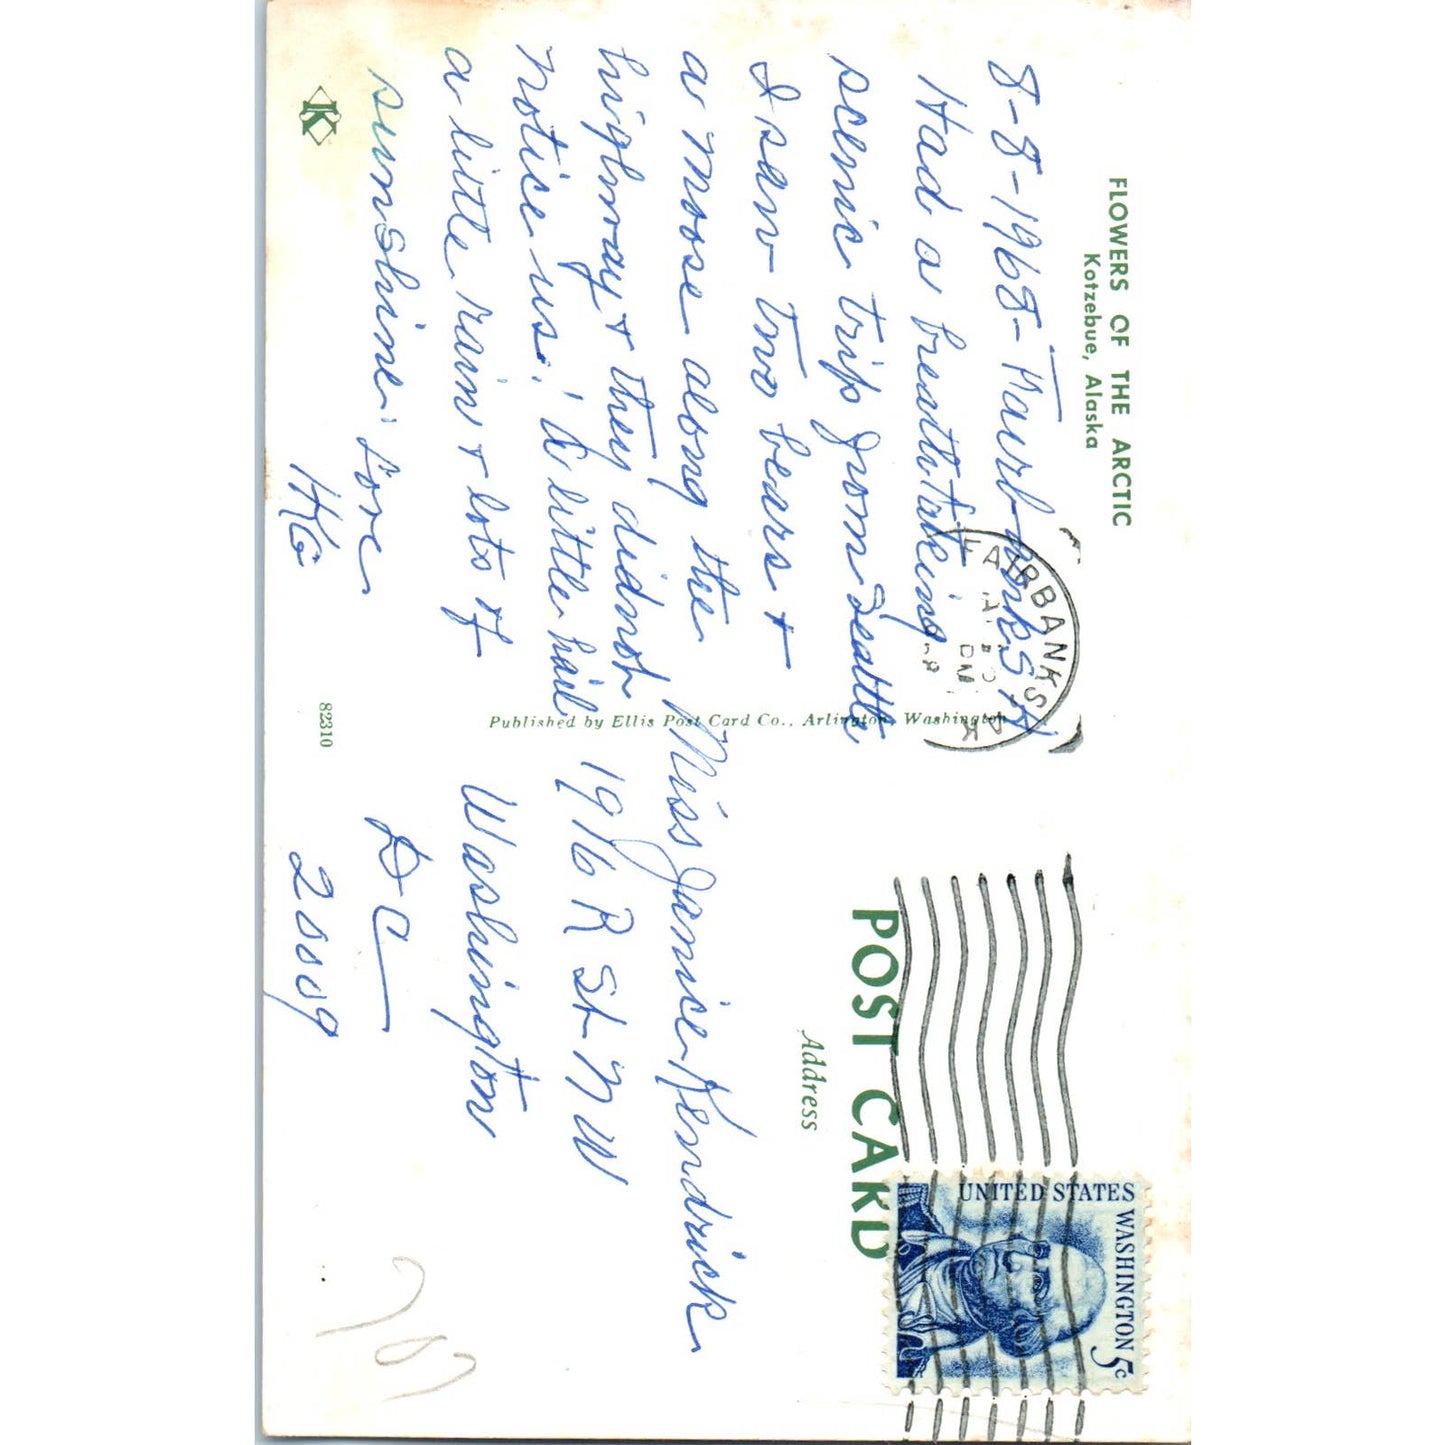 FLOWERS OF THE ARCTIC
Kotzebue, Alaska
8-8-1968-
Had a breathtaking
scenic trip from Seattle
I saw two bears +
a moose along the
highway + they did not
notice us. A little hail
a little rain + lots of
sunshine. Love
HKG
K
82310
Published by Ellis Post Card Co., Arlington, Washington
FAIRBANKS, AK
PM
POST CARD
Address
Miss Janice Kendrick
1916 R St N W
Washington
DC
20009
UNITED STATES
WASHINGTON 5c